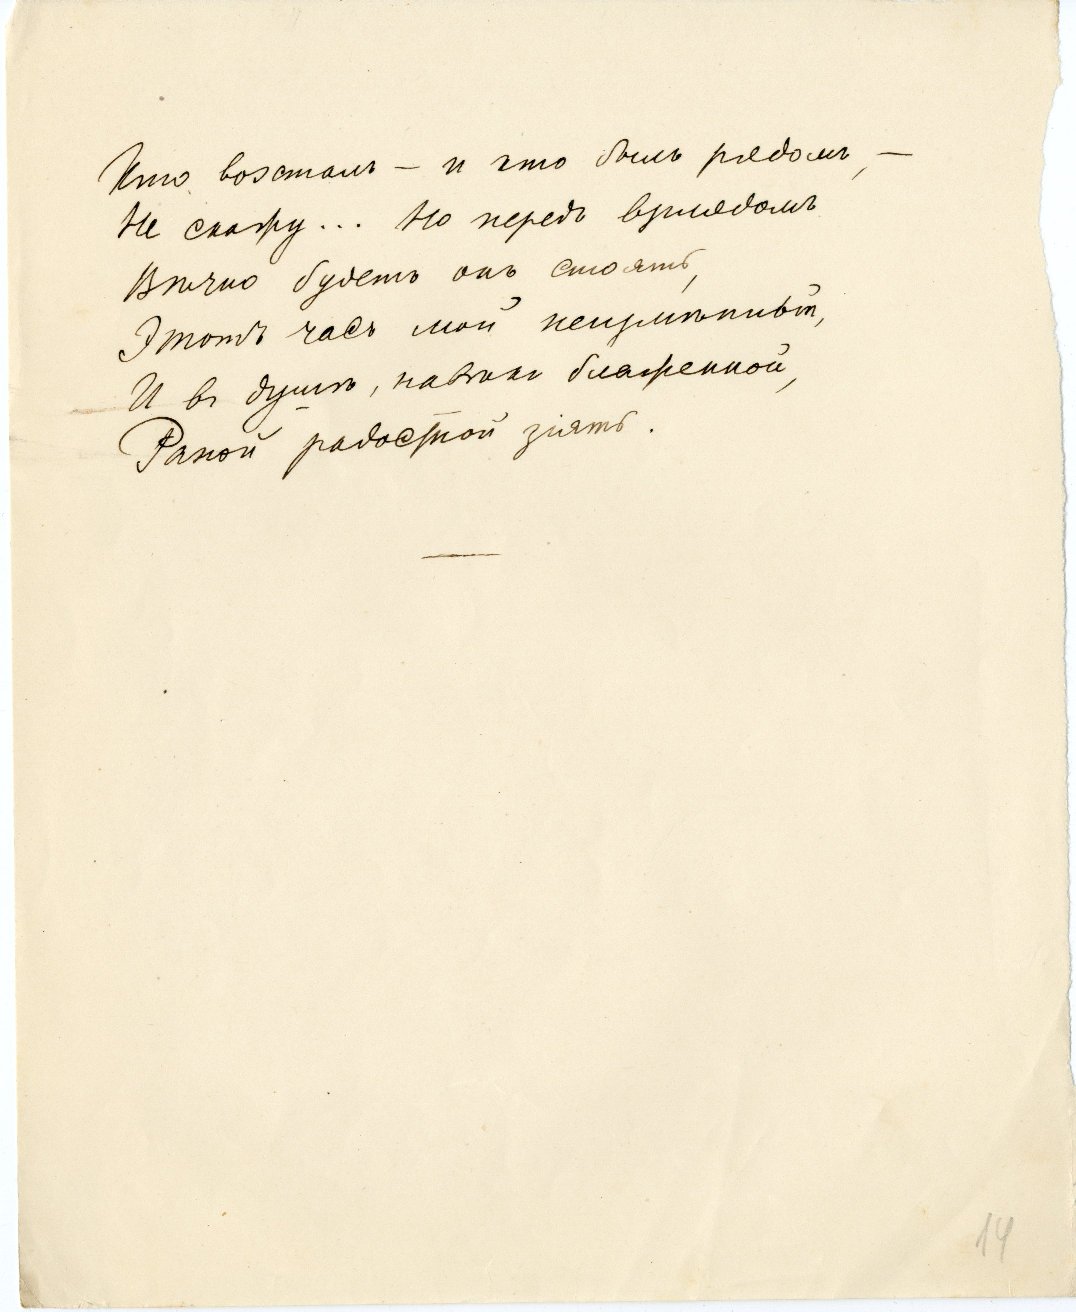 Кто возсталъ — и кто былъ рядомъ, —
Не скажу... Но передъ взглядомъ
Вѣчно будетъ онъ стоять,
Этотъ часъ мой неизмѣнный,
И въ душѣ, навѣки блаженной,
Раной радостной зіять.
14